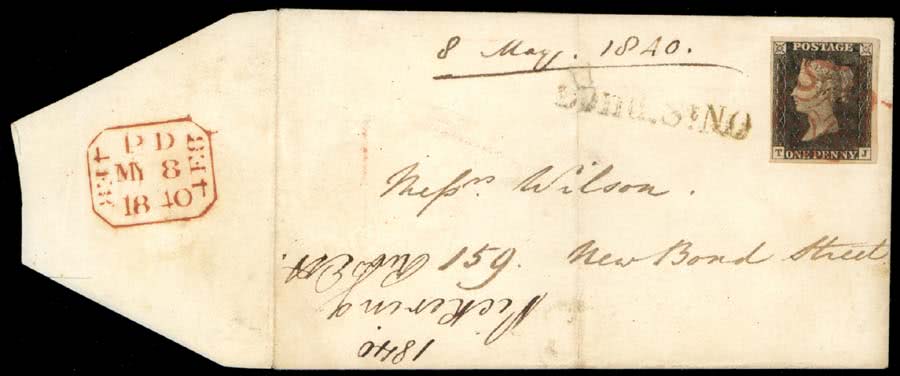 8 May. 1840.
POSTAGE
T J
ONE PENNY
PD
MY 8
1840
Messrs Wilson.
159. New Bond Street
Pickering
1840